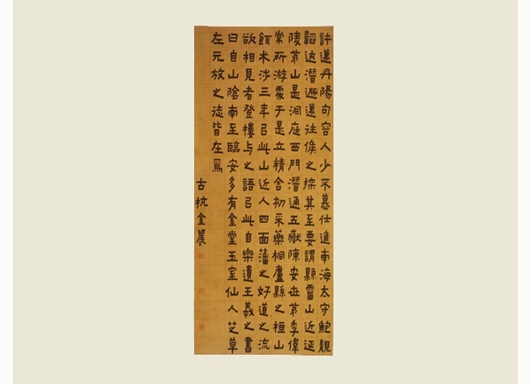 許邁丹陽句容人少不慕仕進南海太守鮑靚
韜迹潛遯邁往候之探其至要謂縣霤山近延
陵茅山是洞庭西門潛通五嶽陳安世茅季偉
常所游處于是立精舍初采藥桐廬縣之桓山
餌朮涉三年以此山近人四面藩之好道之流
欲相見者登樓與之語以此自樂遺王羲之書
曰自山陰南至臨安多有金堂玉室仙人芝草
左元放之徒皆在焉
古杭金農